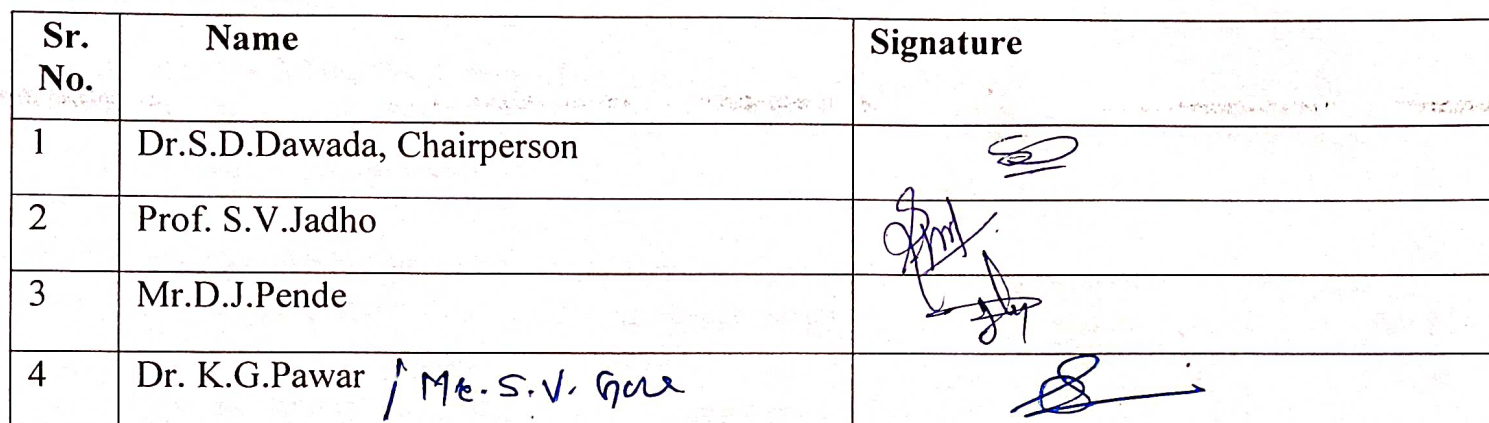 Sr. Name Signature
No.
1 Dr.S.D.Dawada, Chairperson
2 Prof. S.V.Jadho
3 Mr.D.J.Pende
4 Dr. K.G.Pawar / Mr. S.V. Gore